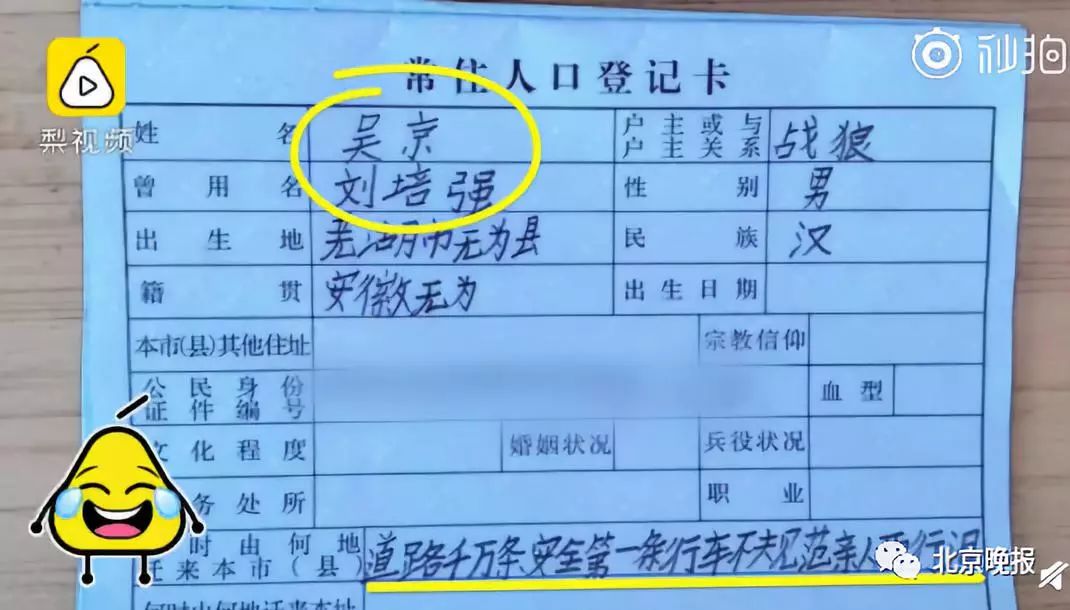 秒拍
梨视频
常住人口登记卡
姓名 吴京 户主或与户主关系 战狼
曾用名 刘培强 性别 男
出生地 芜湖市无为县 民族 汉
籍贯 安徽无为 出生日期
本市(县)其他住址 宗教信仰
公民身份证件编号 血型
文化程度 婚姻状况 兵役状况
务处所 职业
时由何地迁来本市(县) 道路千万条安全第一条行车不夫见范亲人两行泪
北京晚报
何时由何地迁来本址